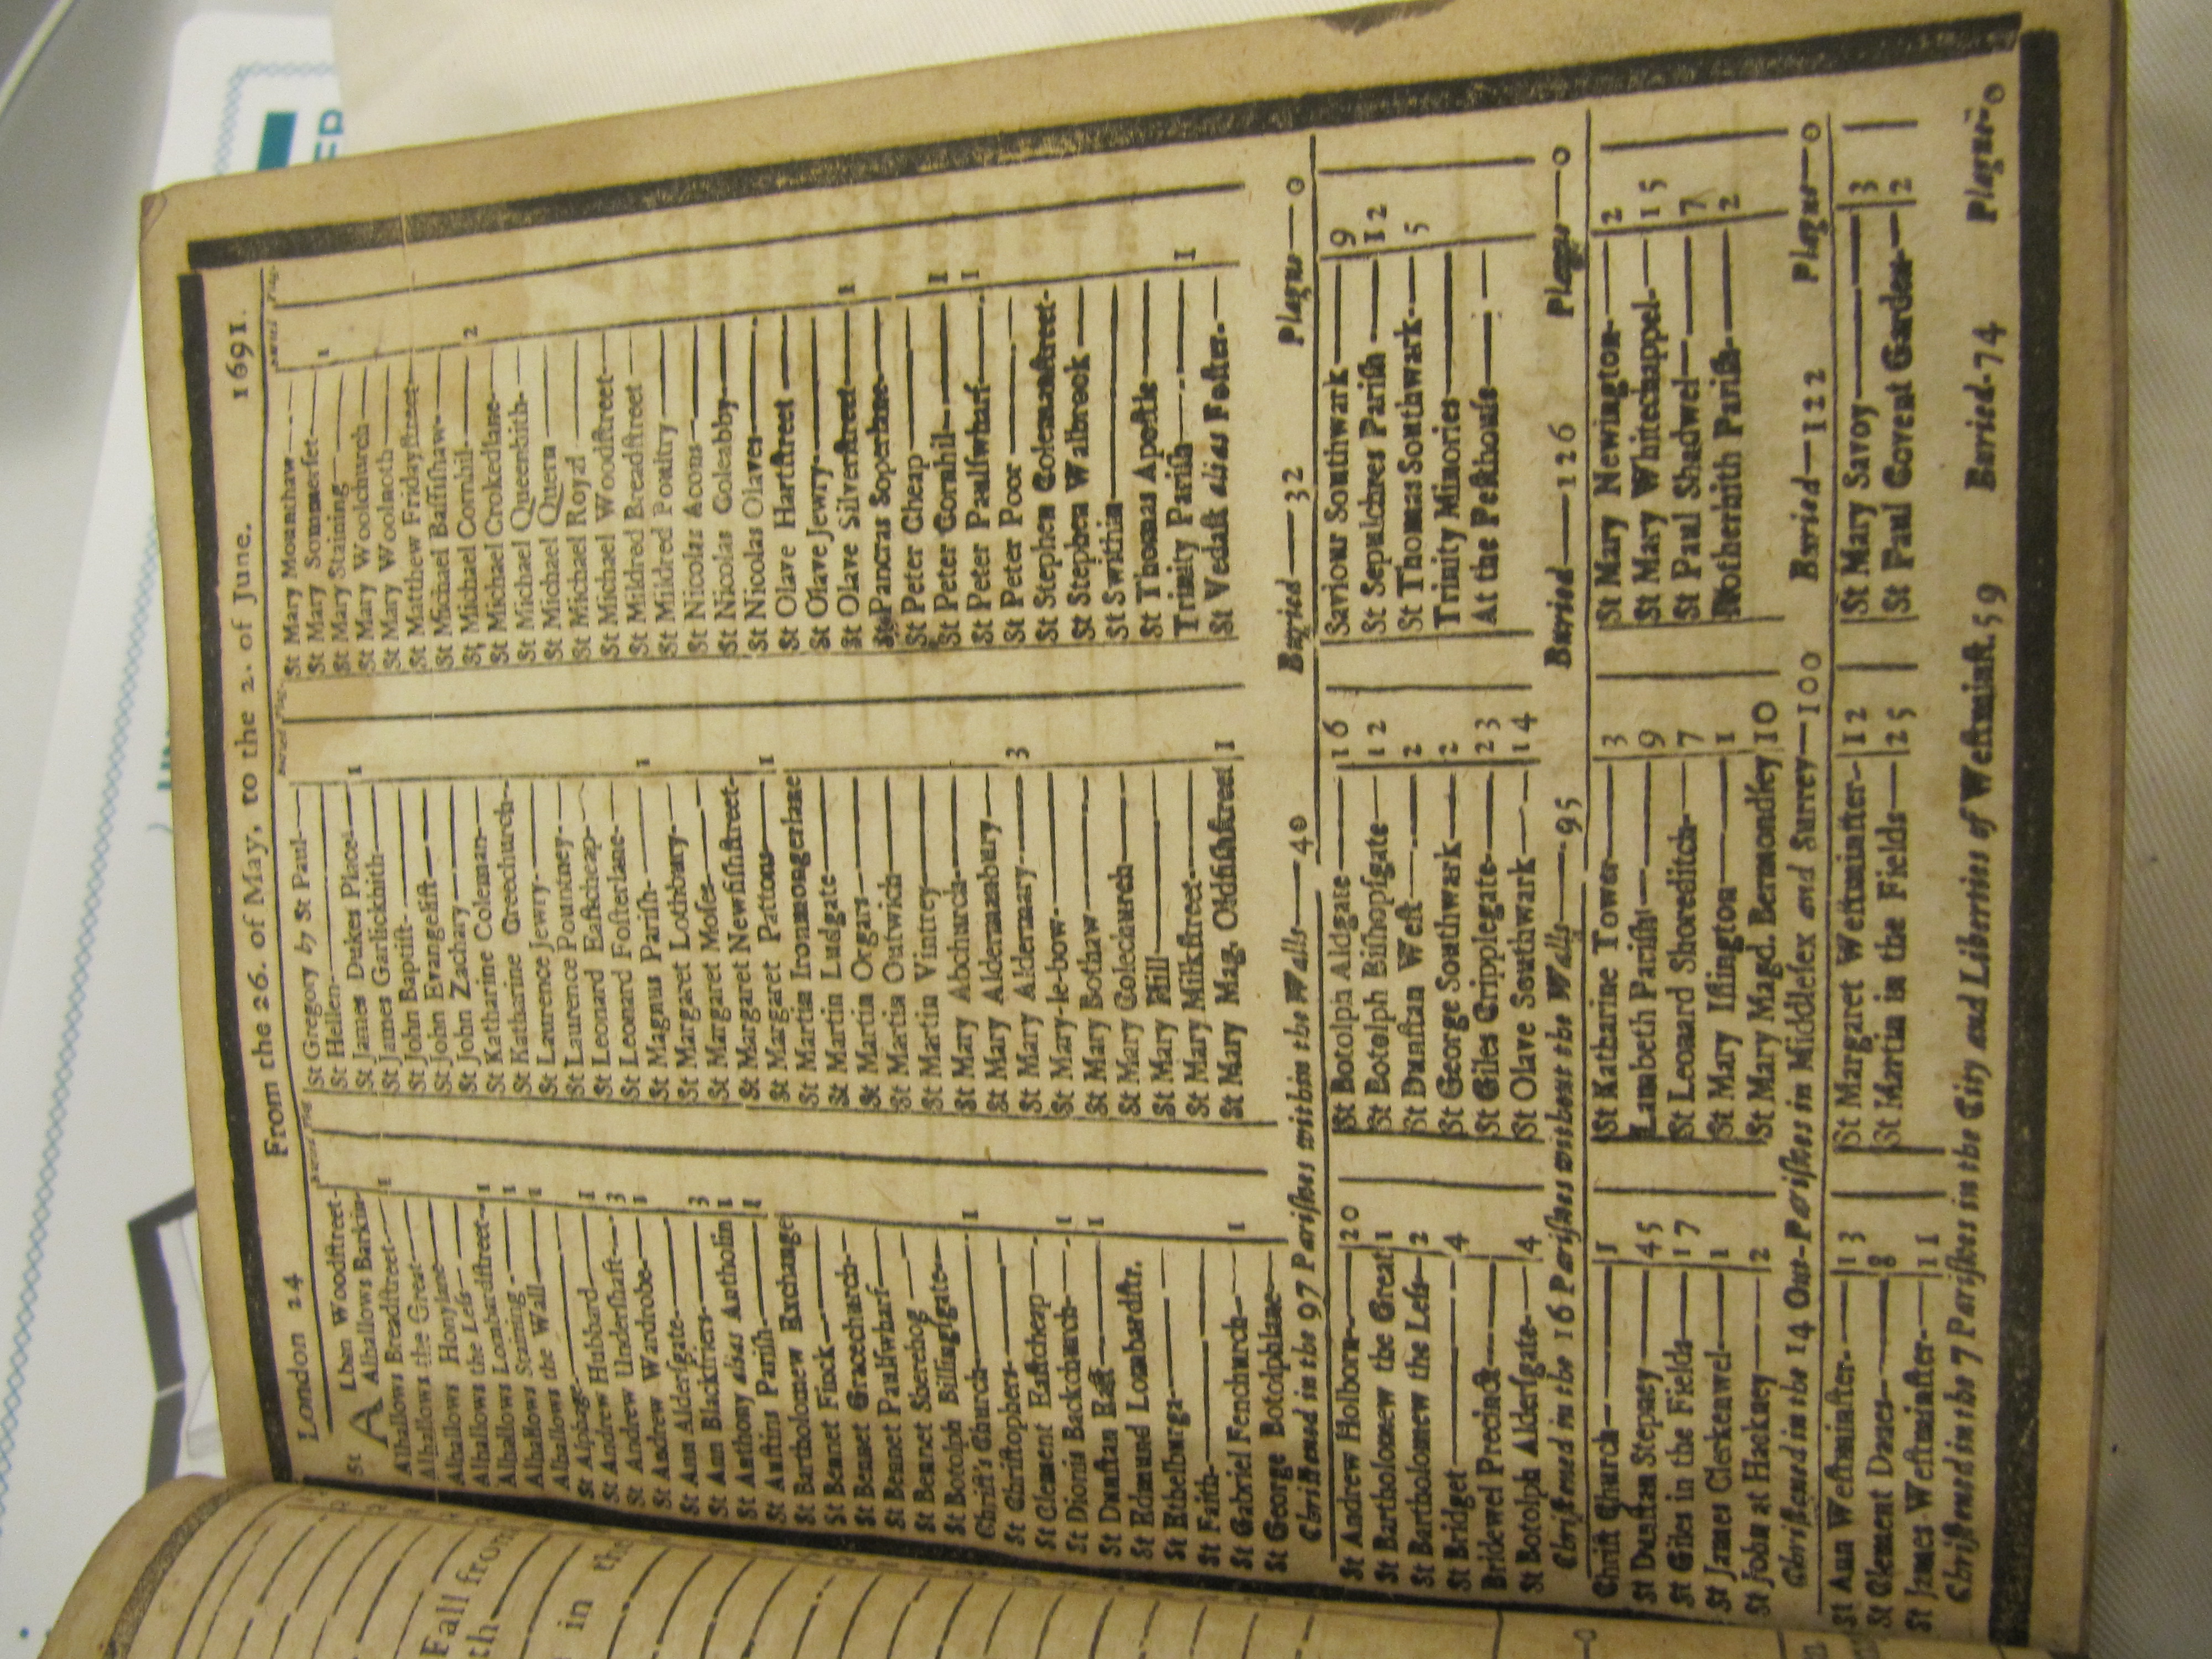 London 24 From the 26. of May, to the 2. of June. 1691.
Buried Plag
St Alban Woodſtreet-
Alhallows Barkin-
Alhallows Breadſtreet— 1
Alhallows the Great—
Alhallows Honylane—
Alhallows the Leſs—
Alhallows Lombardſtreet- 1
Alhallows Staining— 1
Alhallows the Wall— 1
St Alphage—
St Andrew Hubbard— 1
St Andrew Underſhaft— 3
St Andrew Wardrobe— 1
St Ann Alderſgate—
St Ann Blackfriers— 3
St Anthony alias Antholin 1
St Auſtins Pariſh— 1
St Bartholomew Exchange
St Bennet Finck—
St Bennet Gracechurch—
St Bennet Paulſwharf—
St Bennet Sherehog—
St Botolph Billingſgate—
Chriſt's Church— 1
St Chriſtophers—
St Clement Eaſtcheap—
St Dionis Backchurch— 1
St Dunſtan Eaſt— 1
St Edmund Lombardſtr.
St Ethelburga—
St Faith—
St Gabriel Fenchurch— 1
St George Botolphlane—
Buried Plag.
St Gregory by St Paul—
St Hellen—
St James Dukes Place— 1
St James Garlickhith—
St John Baptiſt—
St John Evangeliſt—
St John Zachary—
St Katharine Coleman—
St Katharine Creechurch—
St Laurence Jewry—
St Laurence Pountney—
St Leonard Eaſtcheap—
St Leonard Foſterlane—
St Magnus Pariſh— 1
St Margaret Lothbury—
St Margaret Moſes—
St Margaret Newfiſhſtreet-
St Margaret Pattons— 1
St Martin Ironmongerlane
St Martin Ludgate—
St Martin Orgars—
St Martin Outwich—
St Martin Vintrey—
St Mary Abchurch—
St Mary Aldermanbury—
St Mary Aldermary— 3
St Mary-le-bow—
St Mary Bothaw—
St Mary Colechurch—
St Mary Hill—
St Mary Milkſtreet—
St Mary Mag. Oldfiſhſtreet 1
Buried Plag.
St Mary Mounthaw—
St Mary Sommerſet— 1
St Mary Staining—
St Mary Woolchurch—
St Mary Woolnoth—
St Matthew Fridayſtreet-
St Michael Baſſiſhaw—
St Michael Cornhil— 2
St Michael Crokedlane—
St Michael Queenhith-
St Michael Quern—
St Michael Royal—
St Michael Woodſtreet—
St Mildred Breadſtreet—
St Mildred Poultry—
St Nicolas Acons—
St Nicolas Coleabby—
St Nicolas Olaves—
St Olave Hartſtreet—
St Olave Jewry—
St Olave Silverſtreet— 1
St Pancras Soperlane—
St Peter Cheap—
St Peter Cornhil— 1
St Peter Paulſwharf— 1
St Peter Poor—
St Stephen Colemanſtreet-
St Stephen Walbrook—
St Swithin—
St Thomas Apoſtle—
Trinity Pariſh— 1
St Vedaſt alias Foſter-—
Chriſtened in the 97 Pariſhes within the Walls—40 Buried—32 Plague—0
St Andrew Holborn— 20
St Bartholomew the Great 1
St Bartholomew the Leſs- 2
St Bridget— 4
Bridewel Precinct—
St Botolph Alderſgate— 4
St Botolph Aldgate— 16
St Botolph Biſhopſgate— 12
St Dunſtan Weſt— 2
St George Southwark— 2
St Giles Cripplegate— 23
St Olave Southwark— 14
Saviour Southwark— 9
St Sepulchres Pariſh— 12
St Thomas Southwark— 5
Trinity Minories—
At the Peſthouſe—
Chriſtened in the 16 Pariſhes without the Walls—95 Buried—126 Plague—0
Chriſt Church— 1
St Dunſtan Stepney— 45
St Giles in the Fields— 17
St James Clerkenwel— 1
St John at Hackney— 2
St Katharine Tower— 3
Lambeth Pariſh— 9
St Leonard Shoreditch— 7
St Mary Iſlington— 1
St Mary Magd. Bermondſey 10
St Mary Newington— 2
St Mary Whitechappel— 15
St Paul Shadwel— 7
Rotherhith Pariſh— 2
Chriſtened in the 14 Out-Pariſhes in Middleſex and Surrey—100 Buried—122 Plague—0
St Ann Weſtminſter— 13
St Clement Danes— 8
St James Weſtminſter— 11
St Margaret Weſtminſter- 12
St Martin in the Fields— 25
St Mary Savoy— 3
St Paul Covent Garden— 2
Chriſtened in the 7 Pariſhes in the City and Liberties of Weſtminſt. 59 Buried-74 Plague-0
Fall from
in the